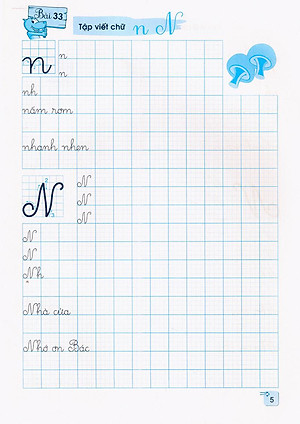 Bài 33
Tập viết chữ n N
n n
n
nh
nấm rơm
nhanh nhẹn
N N
N
N
N
N
Nh
Nhà cửa
Nhớ ơn Bác
5